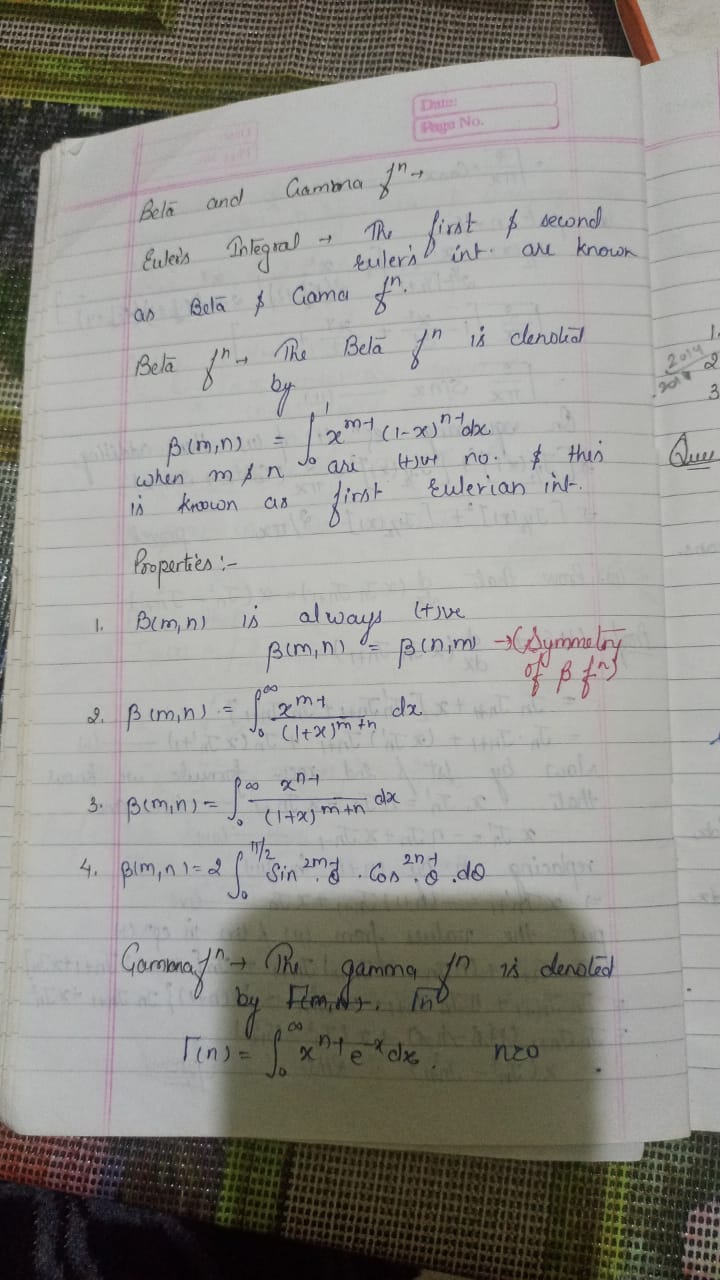 Date:
Page No.
Beta and Gamma fⁿ →
Euler's Integral → The first & second
Euler's int. are known
as Beta & Gama fⁿ.
Beta fⁿ → The Beta fⁿ is denoted
by
β(m,n) = ∫₀¹ x^(m-1) (1-x)^(n-1) dx
when m & n are (+)ve no. & this
is known as first Eulerian int.
Properties :-
1. β(m,n) is always (+)ve
β(m,n) = β(n,m) → (Symmetry
of β fⁿ)
2. β(m,n) = ∫₀^∞ x^(m-1) / (1+x)^(m+n) dx
3. β(m,n) = ∫₀^∞ x^(n-1) / (1+x)^(m+n) dx
4. β(m,n) = 2 ∫₀^(π/2) Sin^(2m-1) θ . Cos^(2n-1) θ . dθ
Gamma fⁿ → The gamma fⁿ is denoted
by Γn
Γ(n) = ∫₀^∞ x^(n-1) e^(-x) dx.
1.
2014
2
3
Ques